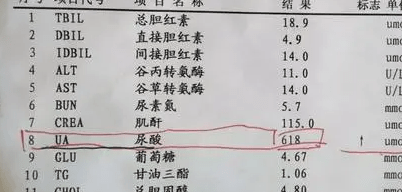 项目代号 项目名称 结果 标志 单
1 TBIL 总胆红素 18.9 umo
2 DBIL 直接胆红素 4.9 umo
3 IDBIL 间接胆红素 14.0 umo
4 ALT 谷丙转氨酶 11.0 U/L
5 AST 谷草转氨酶 14.0 U/L
6 BUN 尿素氮 5.7 mmo
7 CREA 肌酐 115.0 umo
8 UA 尿酸 618 ↑ umo
9 GLU 葡萄糖 4.67 mmo
10 TG 甘油三酯 1.06 mmo
11 CHOL 总胆固醇 4.80